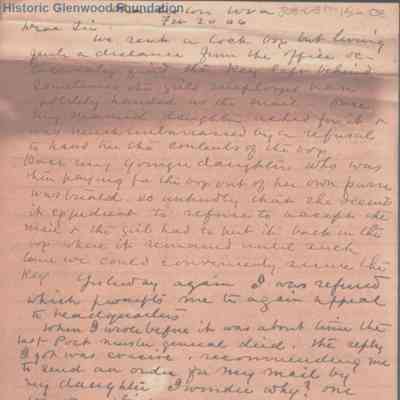 Historic Glenwood Foundation
W Va
Feb 20 06
Dear Sir
We rent a lock box but living
quite a distance from the office oc-
casionally find the key left behind
Sometimes the girls employed have
politely handed us the mail. Once
my married daughter asked for it &
was much embarrassed by a refusal
to hand her the contents of the box
Once my younger daughter who was
then paying for the box out of her own purse
was treated so unkindly that she deemed
it expedient to refuse to accept the
mail & the girl had to put it back in the
box where it remained until such
time we could conveniently secure the
Key. Yesterday again I was refused
which prompts me to again appeal
to headquarters
When I wrote before it was about time the
last Post master general died. The reply
I got was evasive, recommending me
to send an order for my mail by
my daughter I wonder why? one